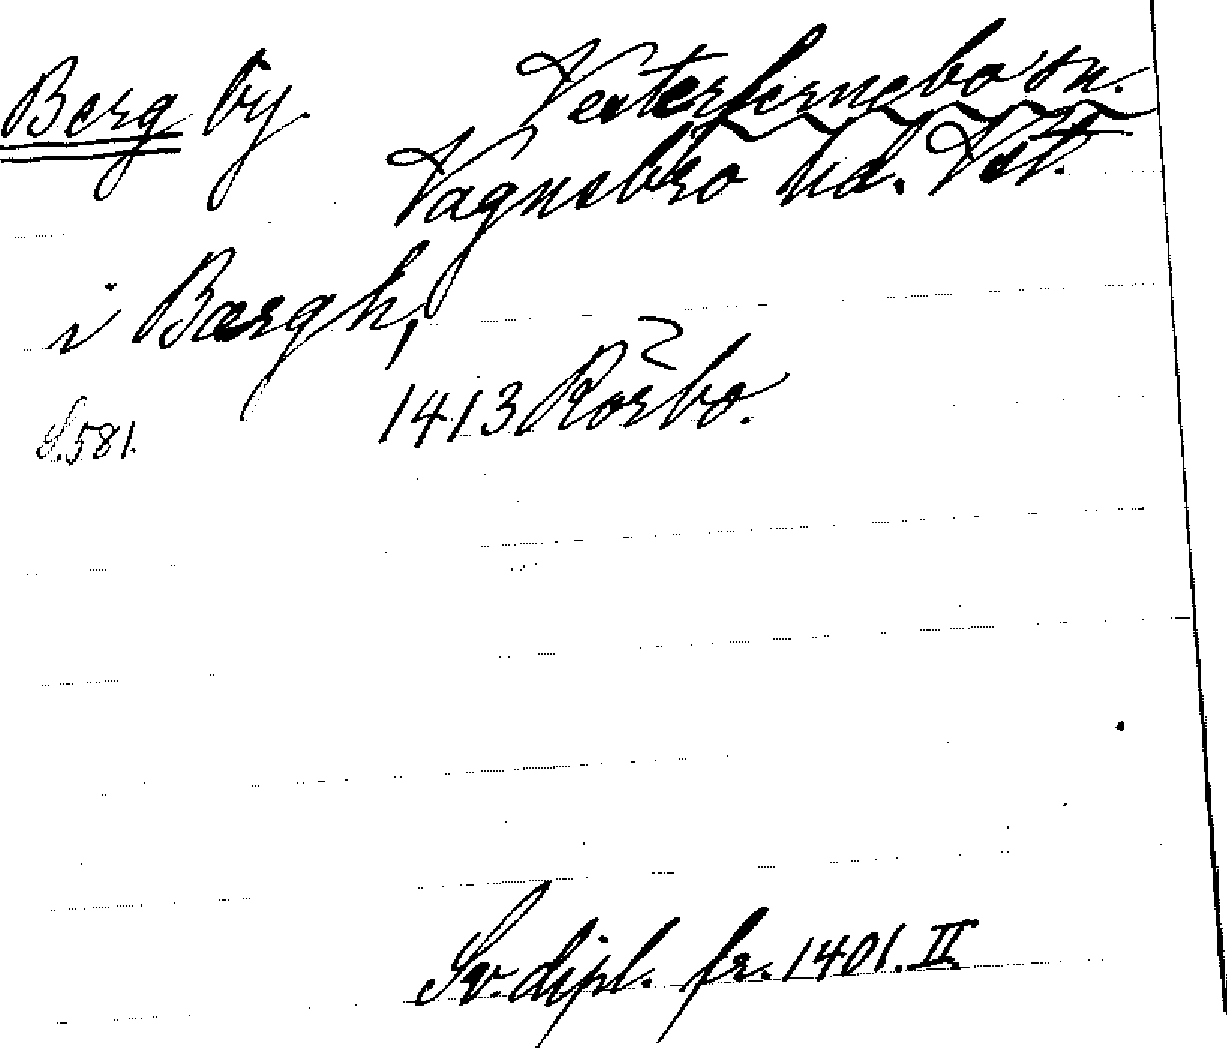 Berg by Vesterfernebo sn.
Vagnsbro hd. Vstm.
i Bærgh,
S. 581. 1413 Rörbo.
Sv. dipl. fr. 1401. II.